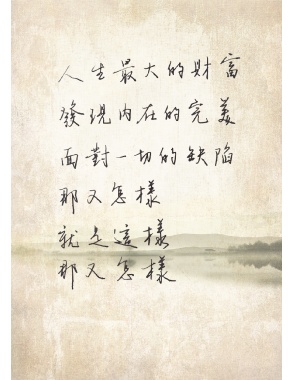 人生最大的財富
發現內在的完美
面對一切的缺陷
那又怎樣
就是這樣
那又怎樣